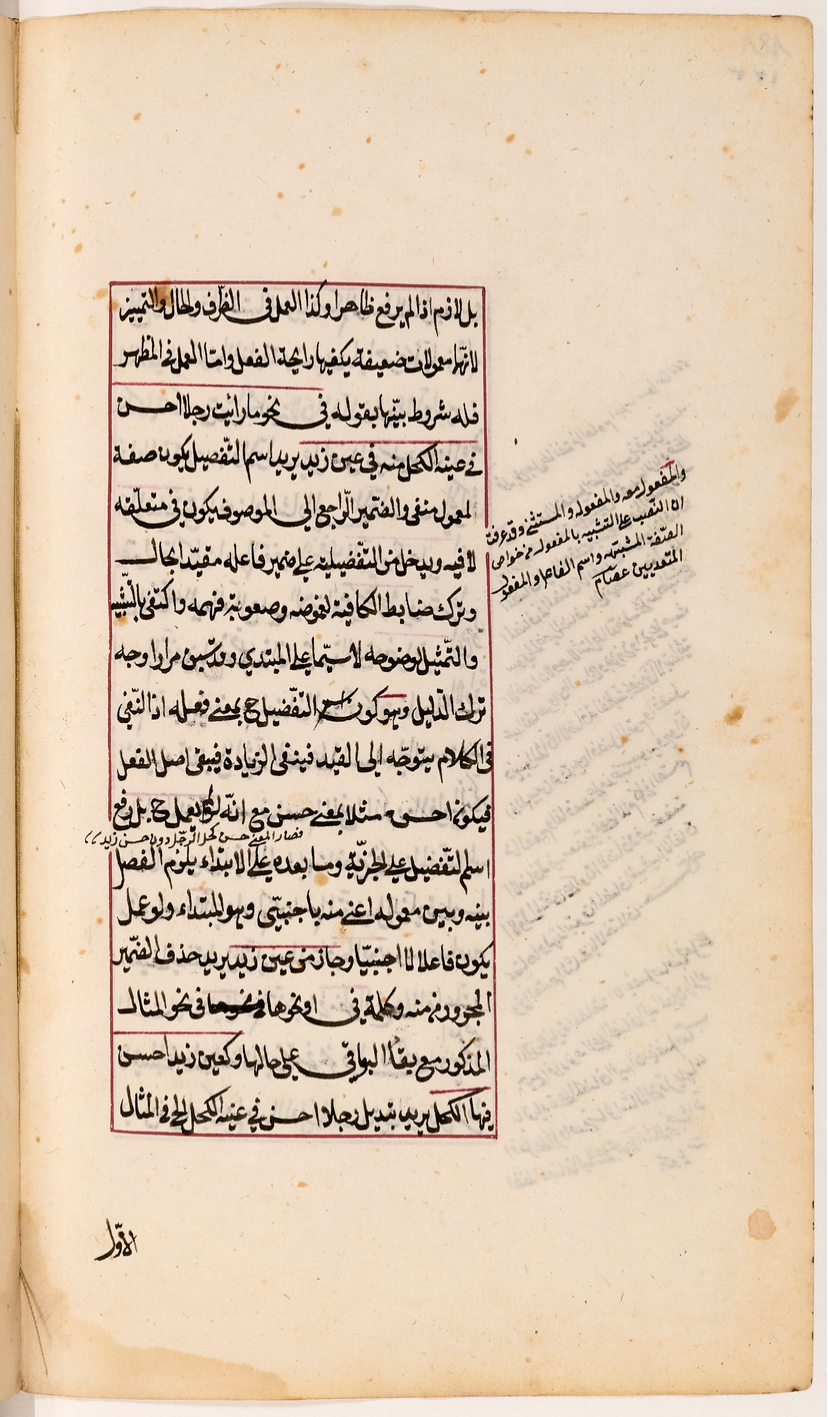 بل لازم اذا لم يرفع ظاهرا وكذا العمل فى الظّرف والحال والتمييز
لانّها معمولات ضعيفة يكفيها رايحة الفعل وامّا العمل فى المظهر
فله شروط بيّنها بقوله فى نحو ما رايت رجلا احسن
فى عينه الكحل منه فى عين زيد يريد اسم التّفصيل يكون صفة
لمعمول منفى والضمير الرّاجع الى الموصوف يكون فى متعلّقه
لا فيه ويدخل من التّفضيلية على ضمير فاعله مقيّد ابحال
وترك ضابط الكافية لغموضه وصعوبة فهمه واكتفى بالتّنبيه
والتّمثيل لوضوحه لا سيّما على المبتدي وقد سبق مرارا وجه
ترك الدّليل وهو كون اسم التفّضيل ح بمعنى فعله اذ النّفي
فى الكلام يتوجّه الى القيد فينفى الزيادة فيبقى اصل الفعل
فيكون احسن مثلا بمعنى حسن مع انّه لو لم يعمل ح بل رفع
فصار المعنى حسن كحل الرّجل دون حسن زيد
اسم التّفضيل على الخبريّة وما بعده على الابتداء يلزم الفصل
بينه وبين معموله اعنى منه باجنبىّ وهو المبتداء ولو عمل
يكون فاعلا لا اجنبيّا وجاز من عين زيد يريد حذف الضّمير
المجرور من منه وكلمة فى او نحوها فى نحو المثال
المذكور مع بقاا البواقى على حالها وكعين زيد احسن
فيها الكحل يريد تبديل رجلا احسن فى عينه الكحل الخ فى المثال
والمفعول معه والمفعول له والمستثنى وقد عرفت
ان النّصب على التشبيه بالمفعول من خواص
الصّفة المشبّهه واسم الفاعل والمفعول
المتعديين عصام
الاوّل